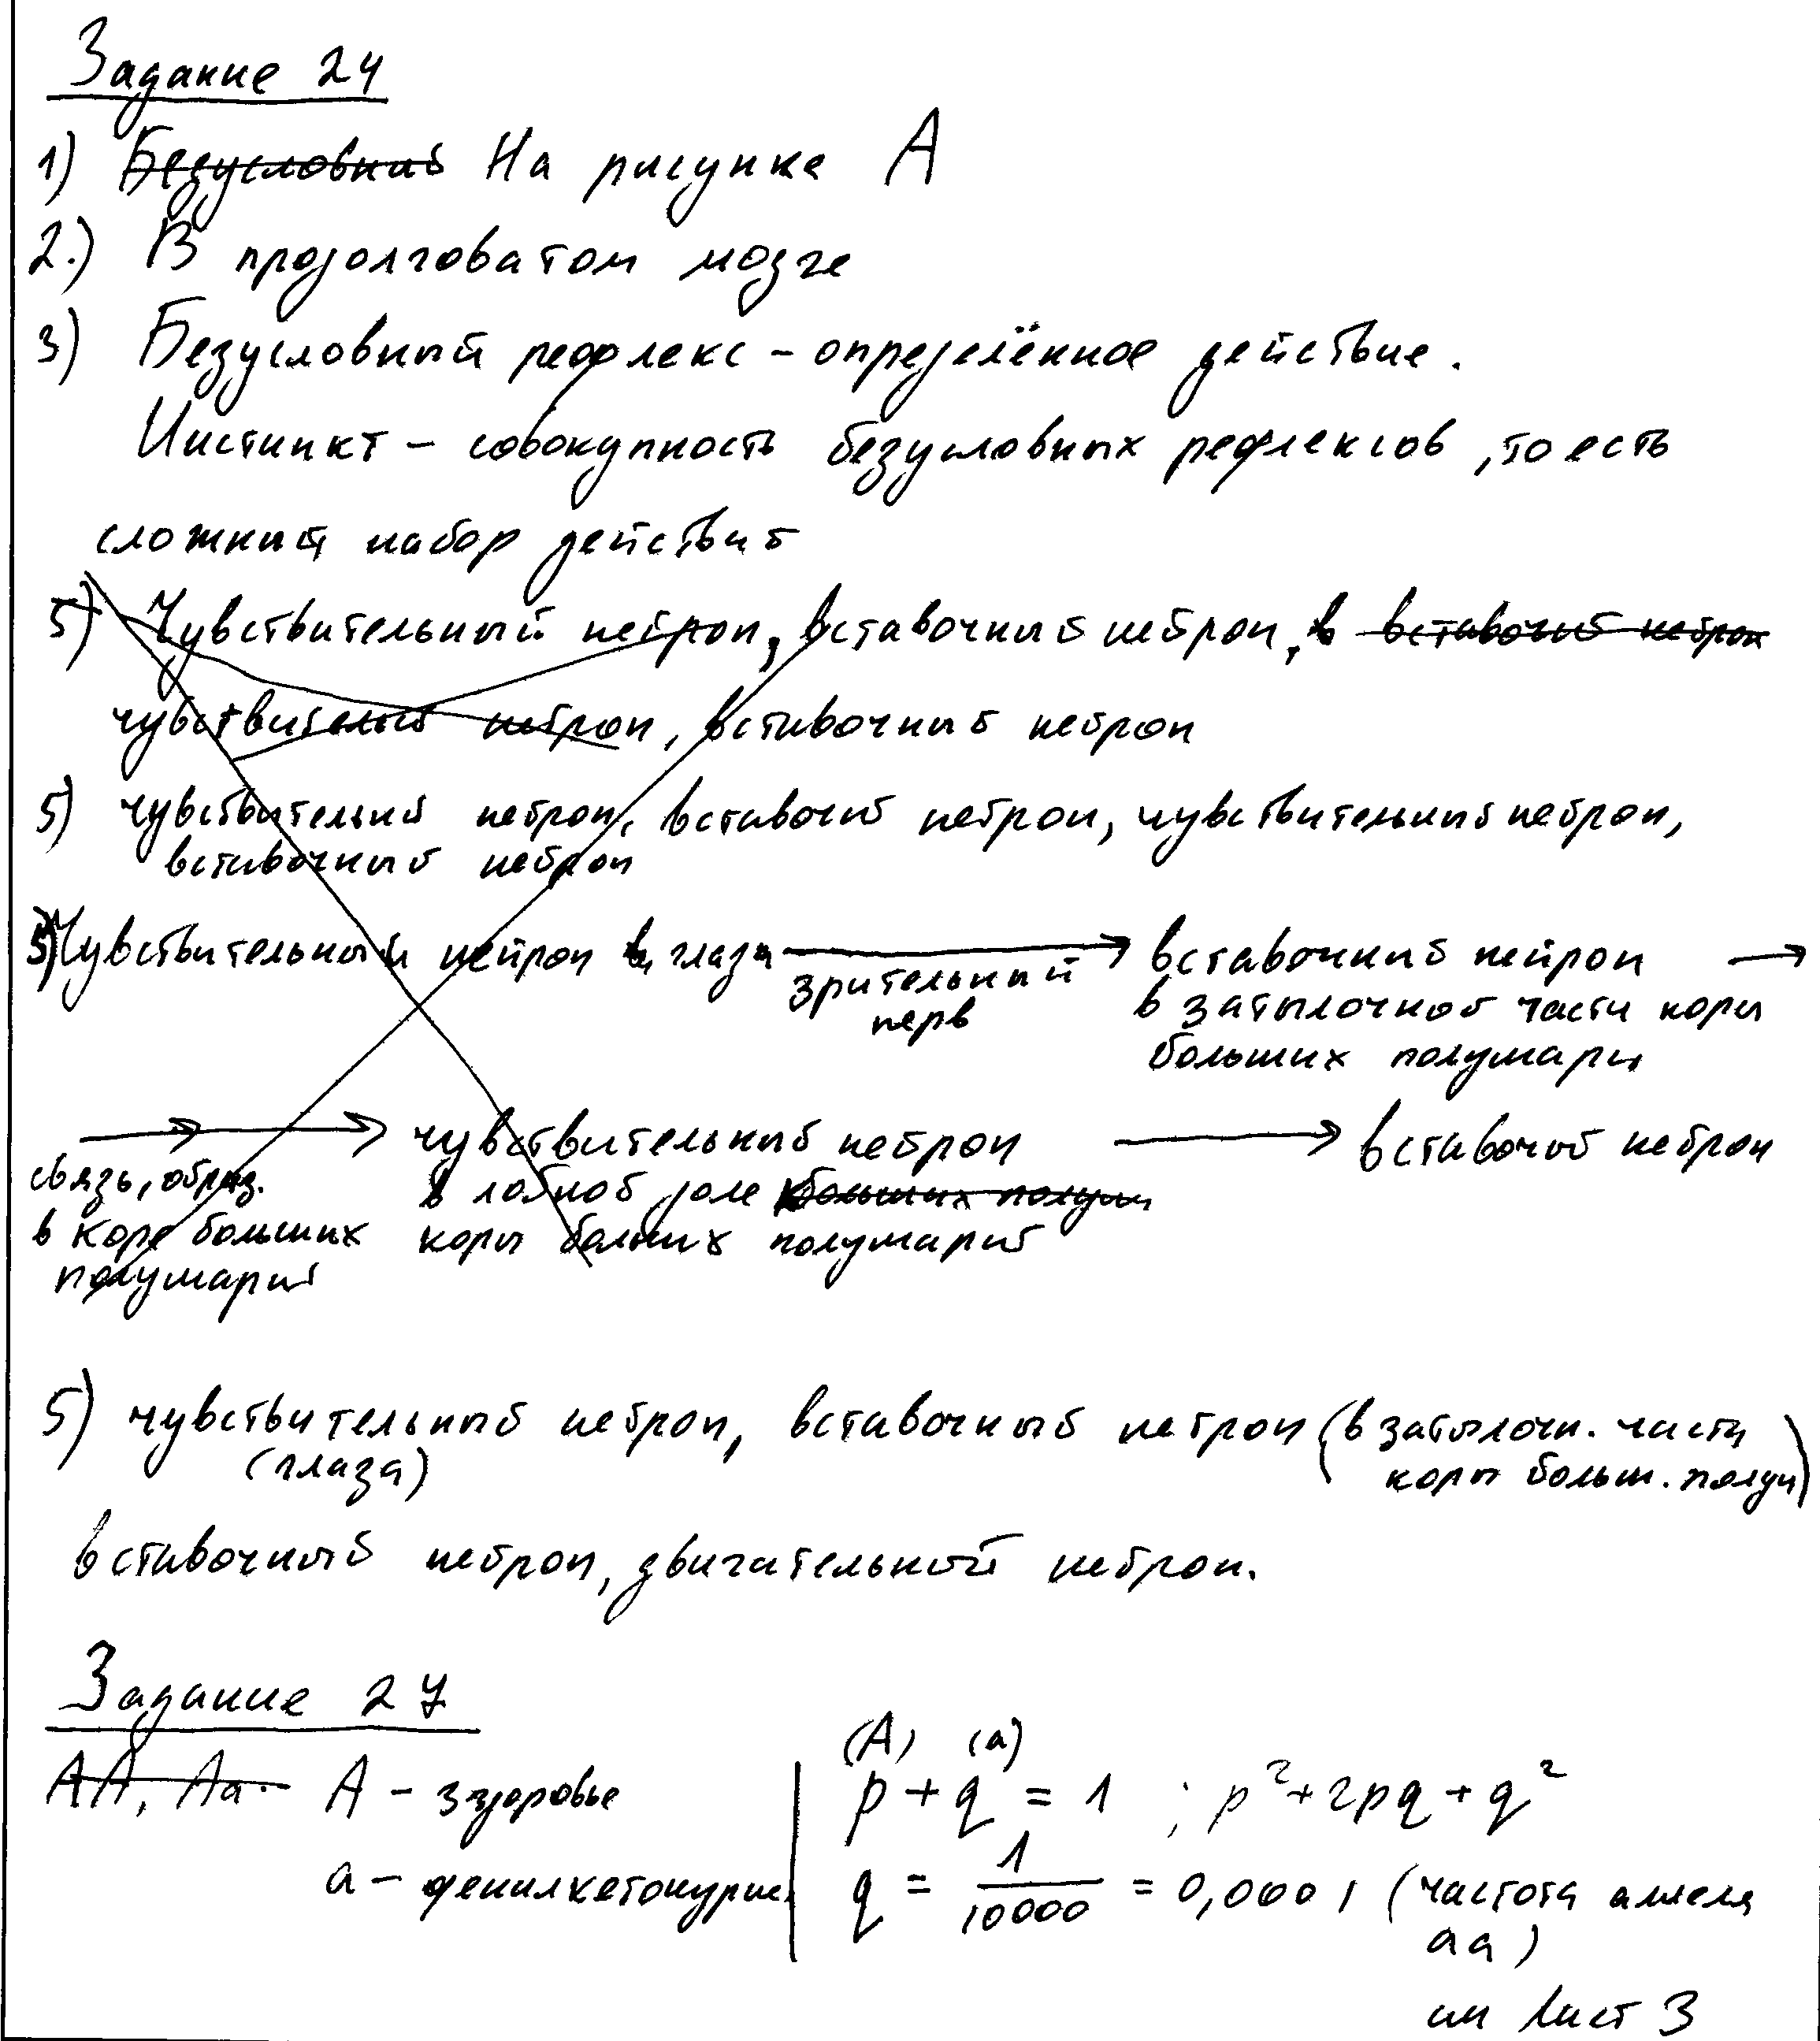 Задание 24
1) Безусловный На рисунке А
2.) В продолговатом мозге
3) Безусловный рефлекс – определённое действие.
Инстинкт – совокупность безусловных рефлексов, то есть
сложный набор действий
5) Чувствительный нейрон, вставочный нейрон, в вставочный нейрон
чувствительный нейрон, вставочный нейрон
5) чувствительный нейрон, вставочный нейрон, чувствительный нейрон,
вставочный нейрон
5) Чувствительный нейрон в глаза → вставочный нейрон →
зрительный нерв
в затылочной части коры
больших полушари
→ чувствительный нейрон → вставочной нейрон
связь, образ. в лобной доле больших полуш
в коре больших коры больших полушарий
полушарий
5) чувствительный нейрон, вставочный нейрон (в затылочн. части
(глаза) коры больш. полуш)
вставочный нейрон, двигательный нейрон.
Задание 27
АА, Аа. А – здоровье
а – фенилкетонурия
(А) (а)
p + q = 1 ; p² + 2pq + q²
q = 1/10000 = 0,0001 (частота аллеля
аа)
см Лист 3